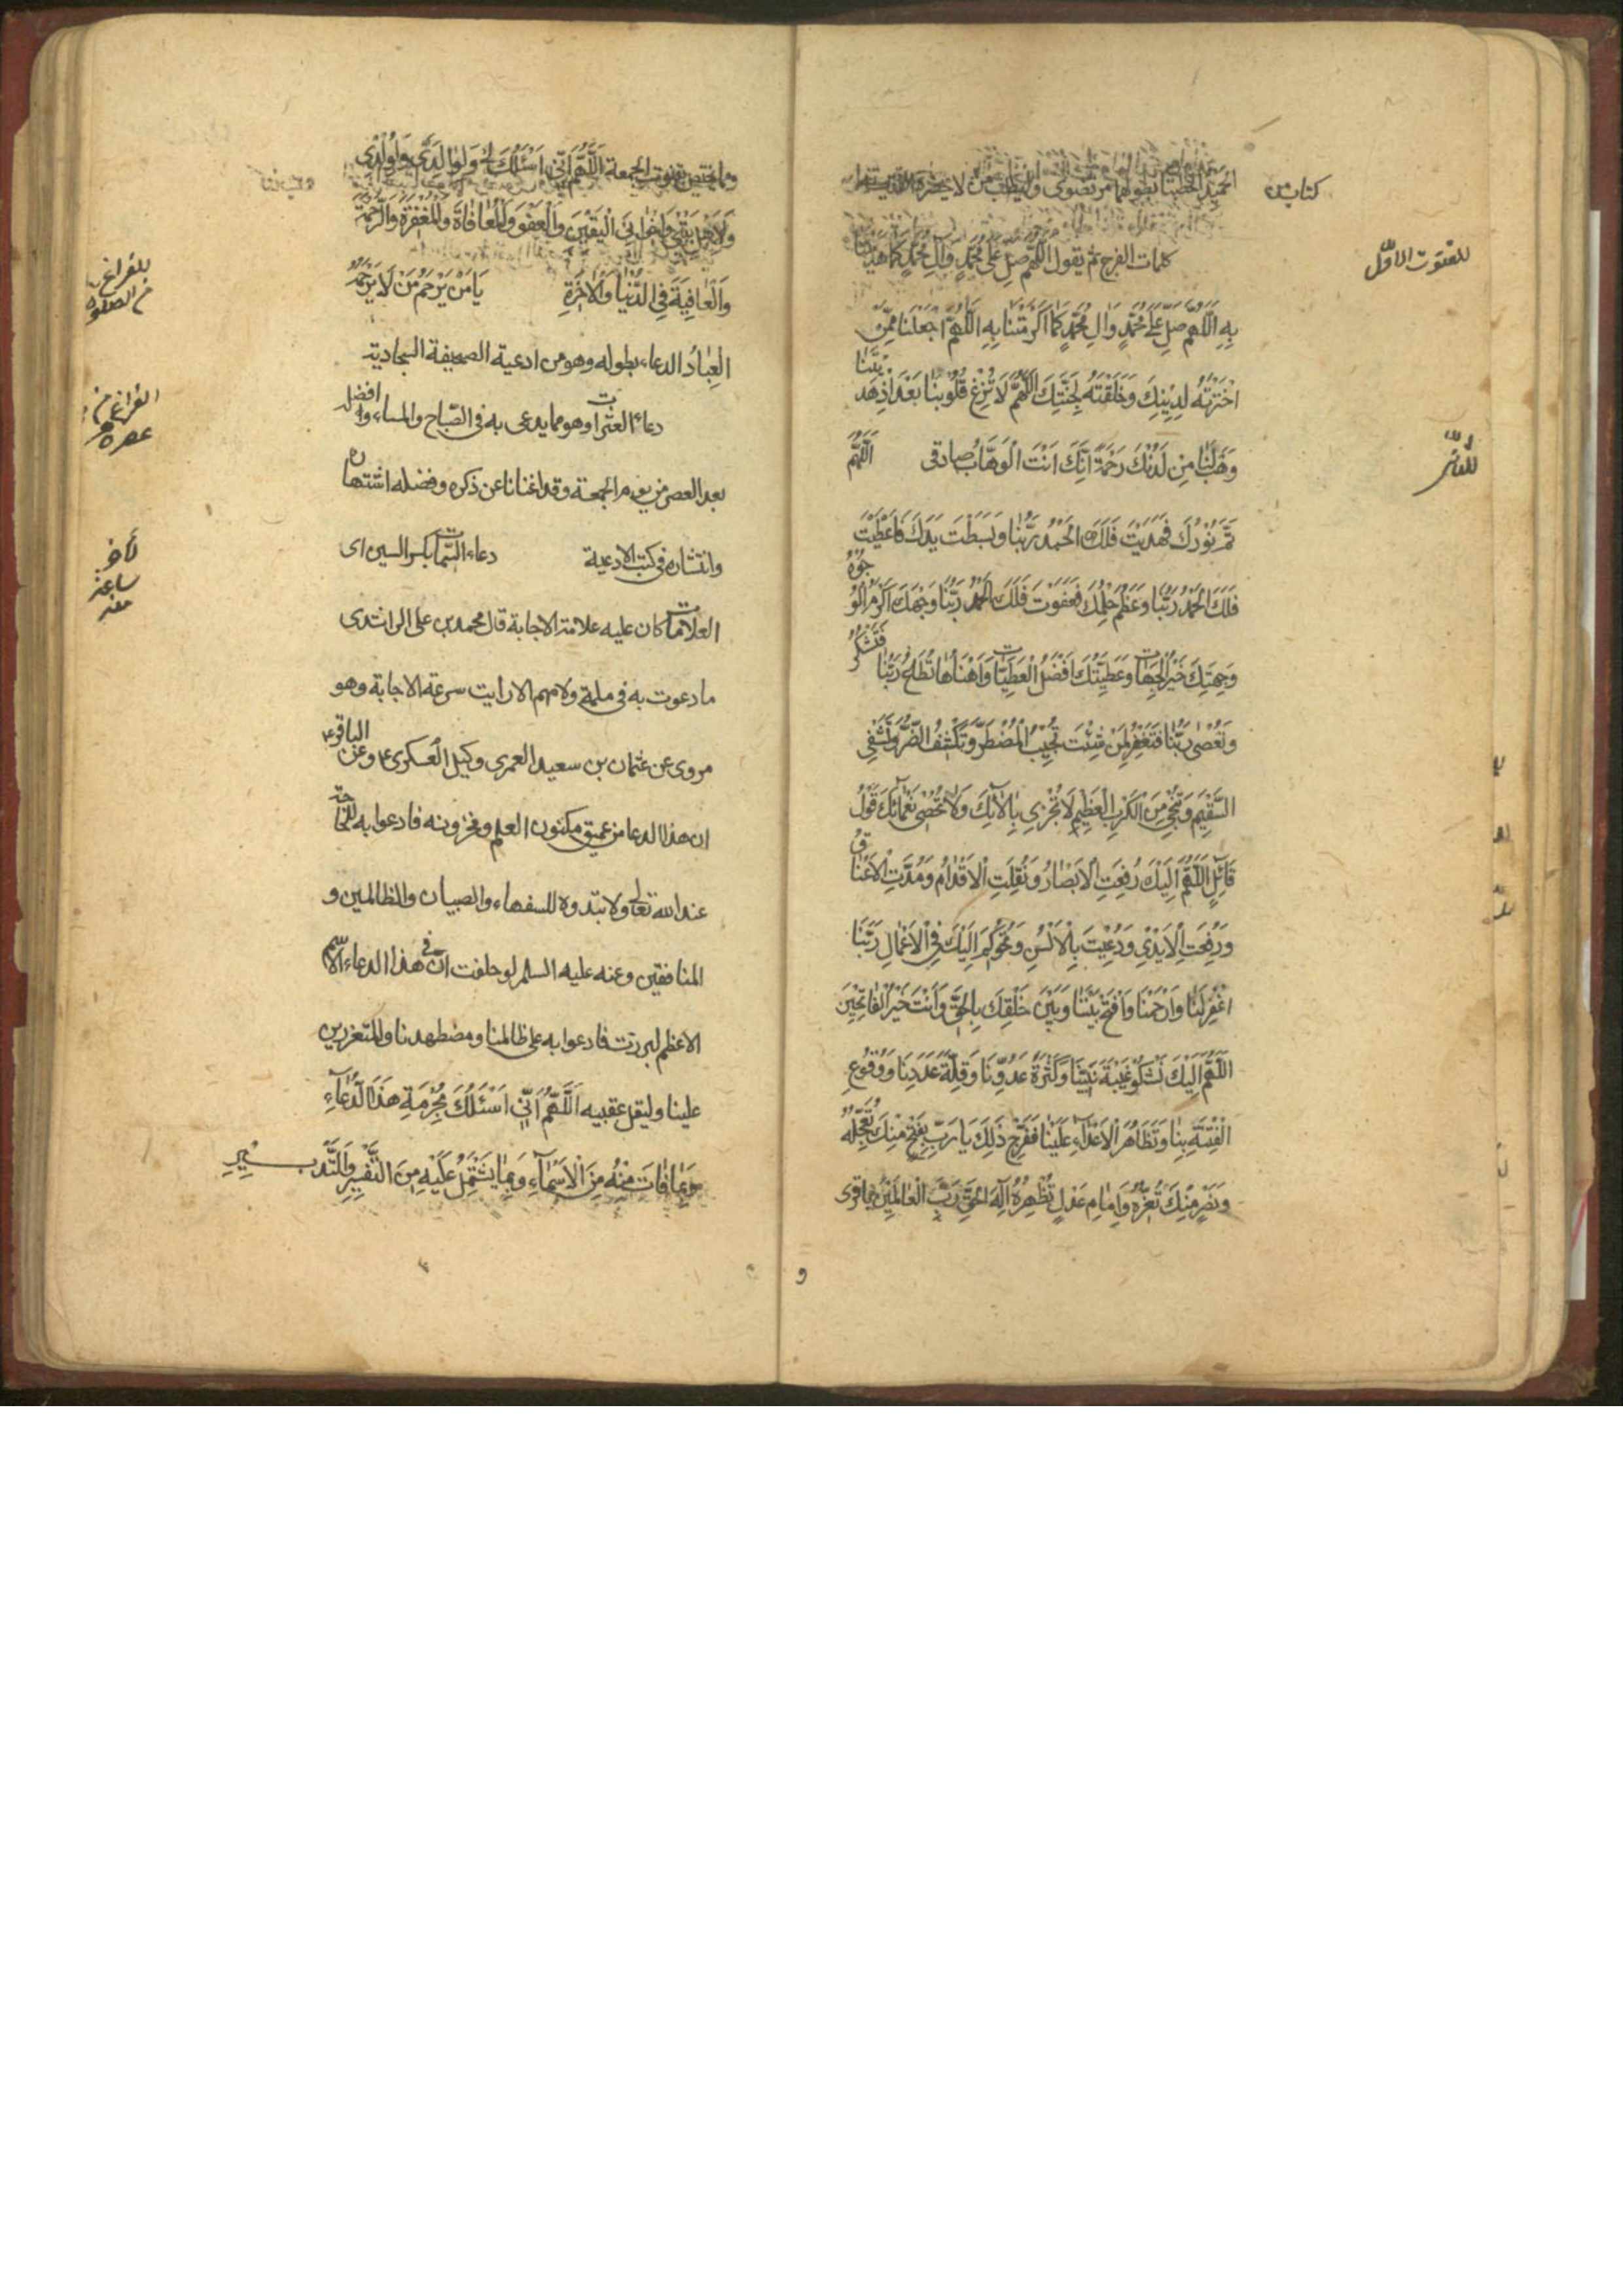 كتاب من
للقنوت الاوّل
كلمات الفرج ثم يقول اللّهم صلّ على محمّد وال محمّد كما هديتنا
بِهِ اَللّهُمَّ صَلِّ عَلى مُحَمَّدٍ وَالِ مُحَمَّدٍ كَما اَكْرَمْتَنا بِهِ اَللّهُمَّ اجْعَلْنا مِمَّنِ
اخْتَرْتَهُ لِدِينِكَ وَخَلَقْتَهُ لِجَنَّتِكَ اَللّهُمَّ لا تُزِغْ قُلُوبَنا بَعْدَ اِذْ هَدَيْتَنا
وَهَبْ لَنا مِن لَدُنْكَ رَحْمَةً اِنَّكَ اَنْتَ الْوَهَّابُ صادقى اَللّهُمَّ
للثانى
تَمَّ نُورُكَ فَهَدَيْتَ فَلَكَ الْحَمْدُ رَبَّنا وَبَسَطْتَ يَدَكَ فَاَعْطَيْتَ
فَلَكَ الْحَمْدُ رَبَّنا وَعَظُمَ حِلْمُكَ فَعَفَوْتَ فَلَكَ الْحَمْدُ رَبَّنا وَجْهُكَ اَكْرَمُ الْوُجُوهُ
وَجِهَتُكَ خَيْرُ الْجِهاتِ وَعَطِيَّتُكَ اَفْضَلُ الْعَطِيّاتِ وَاَهْنَأُها تُطاعُ رَبَّنا فَتَشْكُرُ
وَتُعْصى رَبَّنا فَتَغْفِرُ لِمَنْ شِئْتَ تُجِيبُ الْمُضْطَرَّ وَتَكْشِفُ الضُّرَّ وَتَشْفِى
السَّقِيمَ وَتُنْجِى مِنَ الْكَرْبِ الْعَظِيمِ لا تُجْزى بِالآئِكَ وَلا تُحْصى نَعْمائَكَ قَوْلُ
قائِلٍ اَللّهُمَّ اِلَيْكَ رُفِعَتِ الْاَبْصارُ وَنُقِلَتِ الْاَقْدامُ وَمُدَّتِ الْاَعْناقُ
وَرُفِعَتِ الْاَيْدِى وَدُعِيتَ بِالْاَلْسُنِ وَتُحُوكِمَ اِلَيْكَ فِى الْاَعْمالِ رَبَّنَا
اغْفِرْ لَنا وَارْحَمْنا وَافْتَحْ بَيْنَنا وَبَيْنَ خَلْقِكَ بِالْحَقِّ وَاَنْتَ خَيْرُ الْفاتِحِينَ
اَللّهُمَّ اِلَيْكَ نَشْكُو غَيْبَةَ نَبِيِّنا وَكَثْرَةَ عَدُوِّنا وَقِلَّةَ عَدَدِنا وَوُقُوعَ
الْفِتْنَةِ بِنا وَتَظاهُرَ الْاَعْداءِ عَلَيْنا فَفَرِّجْ ذلِكَ يا رَبِّ بِفَتْحٍ مِنْكَ تُعَجِّلُهُ
وَنَصْرٍ مِنْكَ تُعِزُّهُ وَاِمامِ عَدْلٍ تُظْهِرُهُ اِلهَ الْحَقِّ رَبَّ الْعالَمِينَ باقرى
ومما يختص بقنوت الجمعة اَللّهُمَّ اِنِّى اَسْئَلُكَ لِى وَلِوالِدَىَّ وَلِوُلْدِى
وَلِاَهْلِ بَيْتِى وَاِخْوانِىَ الْيَقِينَ وَالْعَفْوَ وَالْمُعافاةَ وَالْمَغْفِرَةَ وَالرَّحْمَةَ
وَالْعافِيَةَ فِى الدُّنْيا وَالْاخِرَةِ يا مَنْ يَرْحَمُ مَنْ لا يَرْحَمُهُ
للفراغ
من الصلوة
الْعِبادُ الدعاء بطوله وهو من ادعية الصحيفة السجادية
دعاء العشرات وهو مما يدعى به فى الصّباح والمساء وافضله
الفراغ من
عصره
بعد العصر من يوم الجمعة وقد اغنانا عن ذكره وفضله اشتهاره
وانتشاره فى كتب الادعية دعاء السّمات بكسر السين اى
لآخر
ساعة
منه
العلامات كان عليه علامة الاجابة قال محمد بن على الراشدى
ما دعوت به فى ملمة ولا مهم الا رايت سرعة الاجابة وهو
مروى عن عثمان بن سعيد العمرى وكيل العسكرى ع وعن الباقر ع
ان هذا الدعا من عميق مكنون العلم ومخزونه فادعوا به للحاجة
عند الله تعالى ولا تبدوه للسفهاء والصبيان والظالمين و
المنافقين وعنه عليه السلم لو حلفت انّ فى هذا الدعاء الاسم
الاعظم لبررت فادعوا به على ظالمنا ومضطهدنا والمتعززين
علينا وليقل عقيبه اَللّهُمَّ اِنِّى اَسْئَلُكَ بِحُرْمَةِ هذَا الدُّعاءِ
وَبِما فاتَ مِنْهُ مِنَ الْاَسْماءِ وَبِما يَشْتَمِلُ عَلَيْهِ مِنَ التَّفْسِيرِ وَالتَّدْبِيرِ